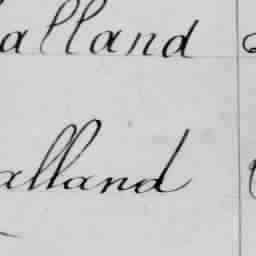 alland
alland